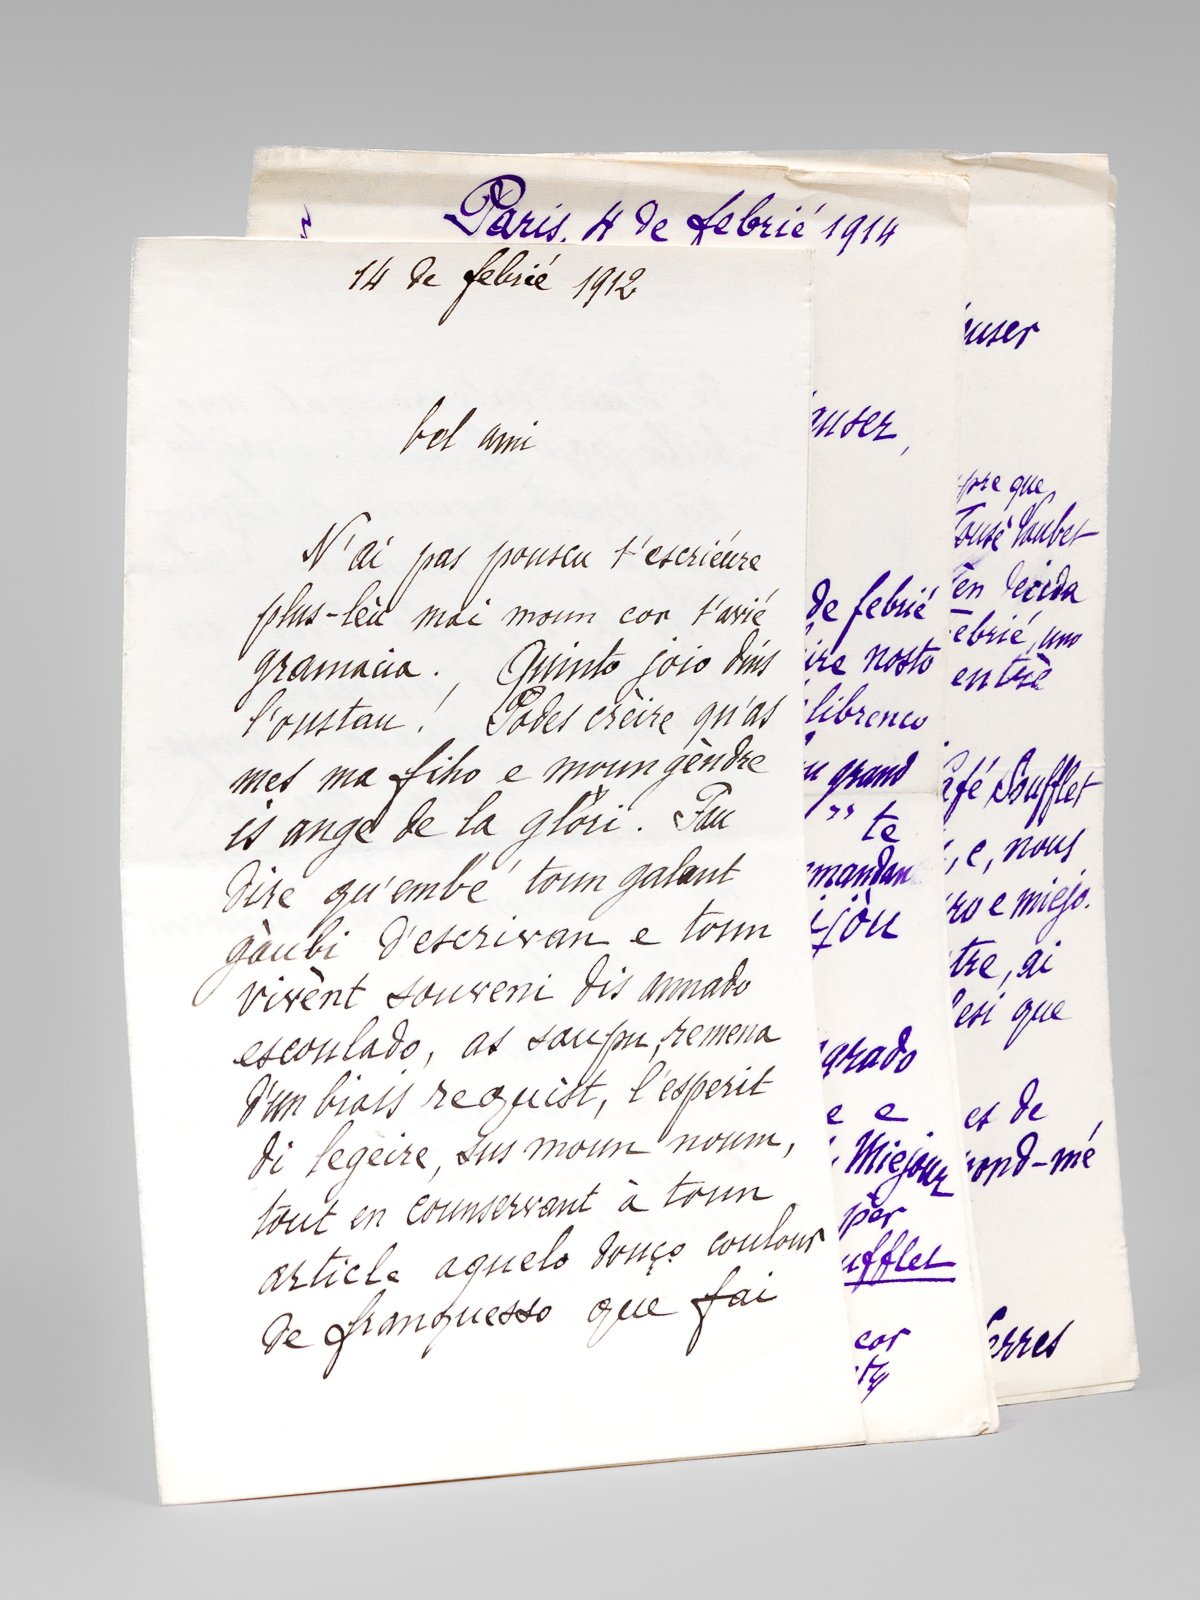 14 de febrié 1912
bel ami
N'ai pas pouscu t'escriéure
plus-lèu mai moun cor t'avié
gramacia. Quinto joio dins
l'oustau! Podes crèire qu'as
mes ma fiho e moun gèndre
is ange de la glòri. Fau
dire qu'embé toun galant
gàubi d'escrivan e toun
vivènt souveni dis annado
escoulado, as saupu, remena
d'un biais requist, l'esperit
di legèire, sus moun noum,
tout en counservant à toun
article aquelo douço coulour
de franquesso que fai
Paris. 4 de febrié 1914
auser,
de febrié
ire nosto
librenco
u grand
" te
mandan
ijòu
grado
e e
Miejour
pèr
ufflet
cor
ty
auser
pre que
Jousè Vaubet
ten decida
ebrié, uno
entrè
afé Soufflet
, e, nous
ro e miejo.
tre, ai
esi que
es de
pond-mé
erres